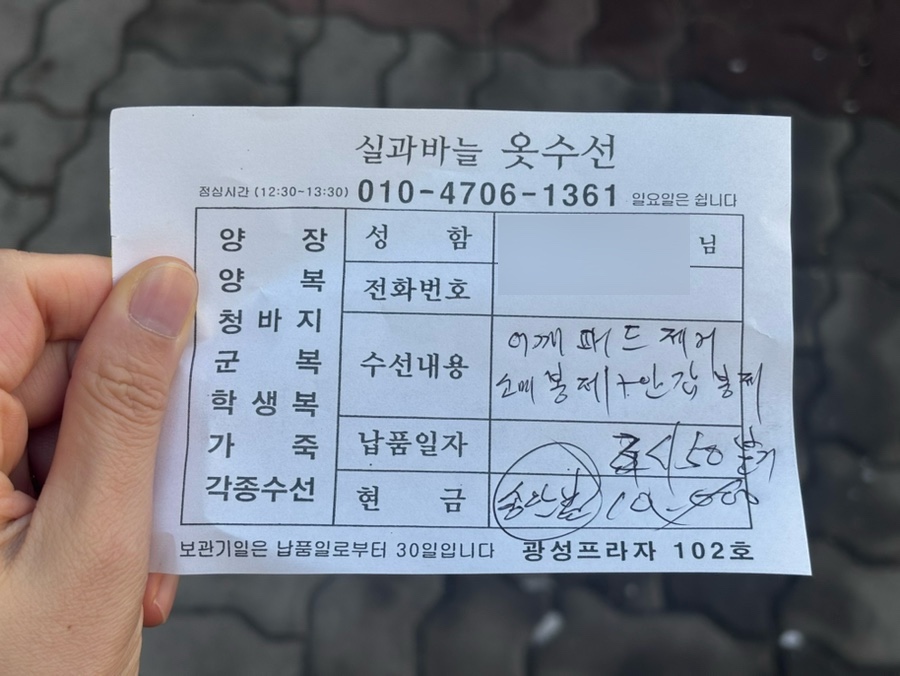 실과바늘 옷수선
점심시간 (12:30-13:30) 010-4706-1361 일요일은 쉽니다
양장
양복
청바지
군복
학생복
가죽
각종수선
성함 님
전화번호
수선내용 어깨 패드 제거
소매 봉제 + 안감 봉제
납품일자 시 50분
현금 10,000
보관기일은 납품일로부터 30일입니다 광성프라자 102호